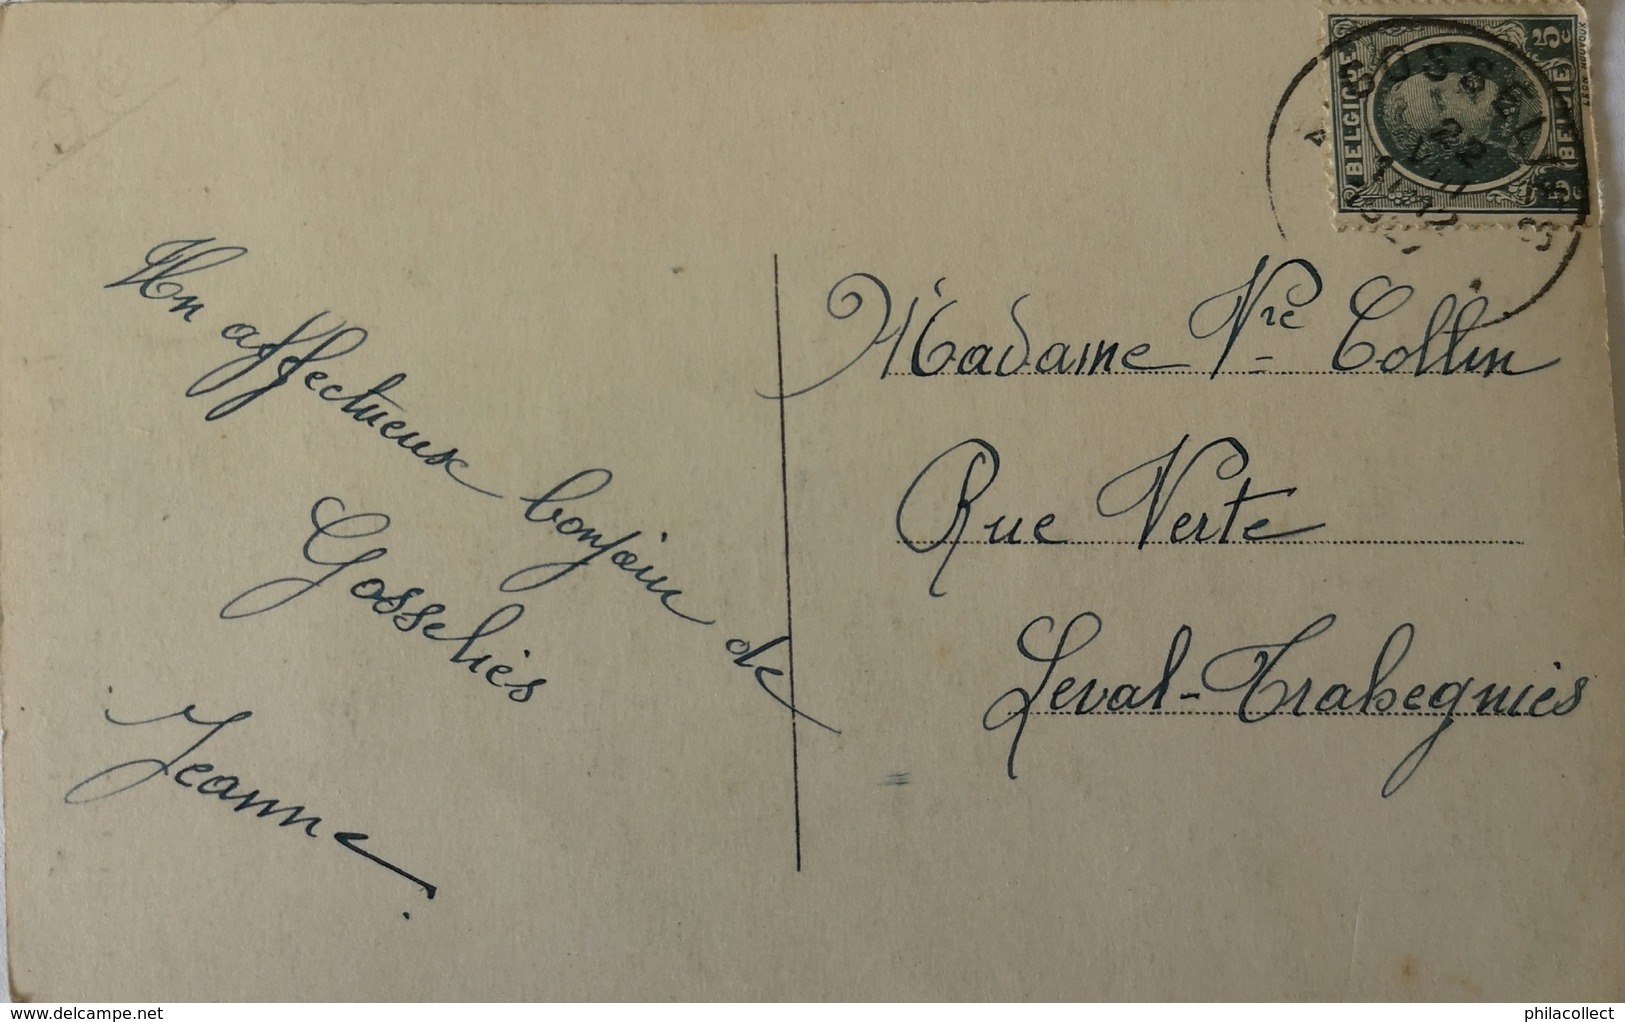 Un affectueux bonjour de
Gosselies
Jeanne.
Madame Vve Collin
Rue Verte
Leval-Trahegnies
BELGIQUE
5 c
BELGIE
5 c
GOSSELIES
22
VIII
delcampe.net
philacollect